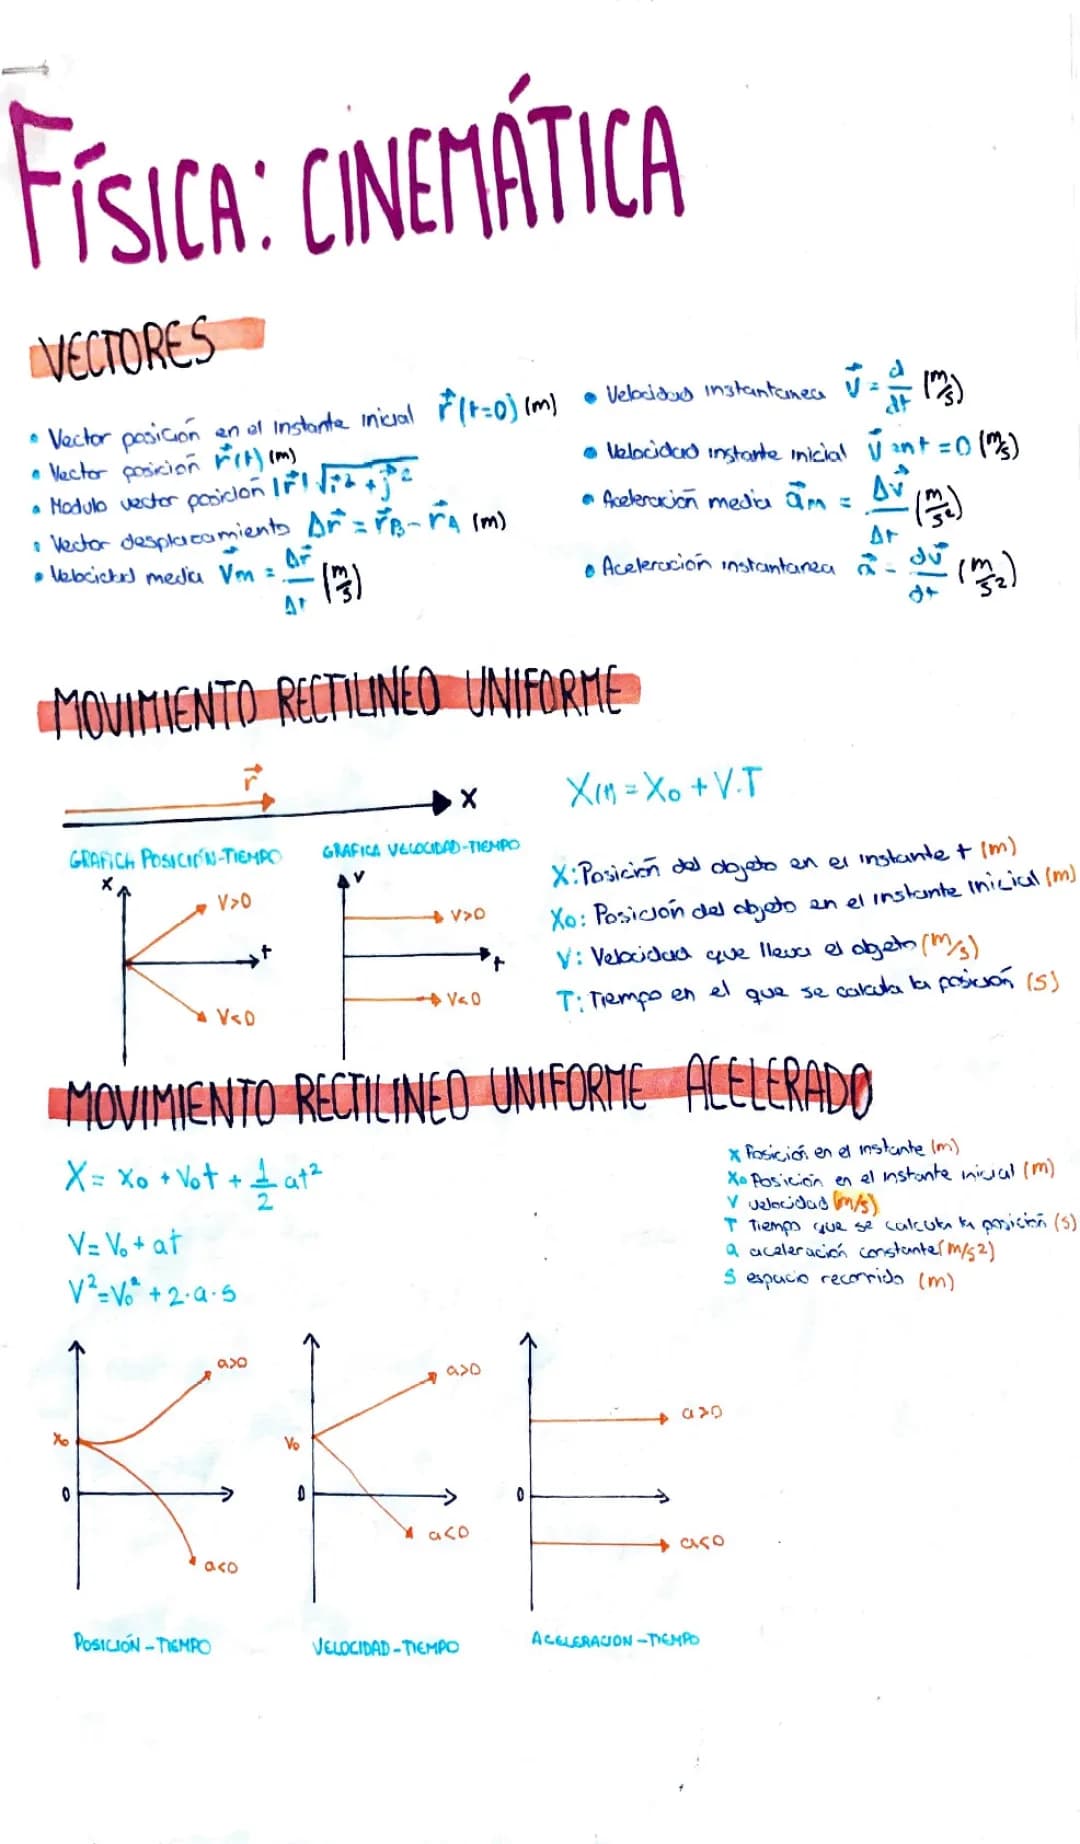 FÍSICA: CINEMÁTICA
VECTORES
• Vector posición en el instante inicial r⃗(t=0) (m)
• Vector posición r⃗(t) (m)
• Modulo vector posición |r⃗| √i⃗² + j⃗²
• Vector desplazamiento Δr⃗ = r⃗B - r⃗A (m)
• Velocidad media V⃗m = Δr⃗/Δt (m/s)
• Velocidad instantanea v⃗ = d/dt (m/s)
• Velocidad instante inicial v⃗ ant = 0 (m/s)
• Aceleración media a⃗m = Δv⃗/Δt (m/s²)
• Aceleración instantanea a⃗ = dv⃗/dt (m/s2)
MOVIMIENTO RECTILINEO UNIFORME
r⃗
X
X(t) = X₀ + V.T
GRAFICA POSICIÓN-TIEMPO
X
V>0
t
V<0
GRAFICA VELOCIDAD-TIEMPO
V
V>0
t
V<0
X: Posición del objeto en el instante t (m)
X₀: Posición del objeto en el instante inicial (m)
V: Velocidad que lleva el objeto (m/s)
T: Tiempo en el que se calcula la posición (s)
MOVIMIENTO RECTILINEO UNIFORME ACELERADO
X = X₀ + V₀t + 1/2 at²
V = V₀ + at
V² = V₀² + 2·a·s
X Posición en el instante (m)
X₀ Posición en el instante inicial (m)
V velocidad (m/s)
T Tiempo que se calcula la posición (s)
a aceleración constante (m/s2)
S espacio recorrido (m)
a>0
X₀
0
a<0
POSICIÓN - TIEMPO
a>0
V₀
0
a<0
VELOCIDAD - TIEMPO
a>0
0
a<0
ACELERACION - TIEMPO